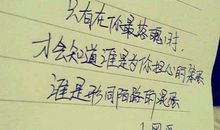 只有在你最落魂时
才会知道谁是为你担心的笨蛋
谁是形同陌路的混蛋